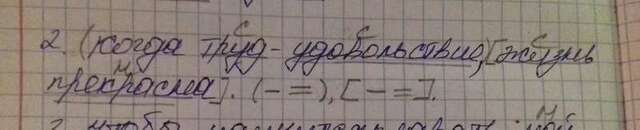 2. (Когда труд - удовольствие, [жизнь
прекрасна]. (- =), [- =].
3. Чтобы